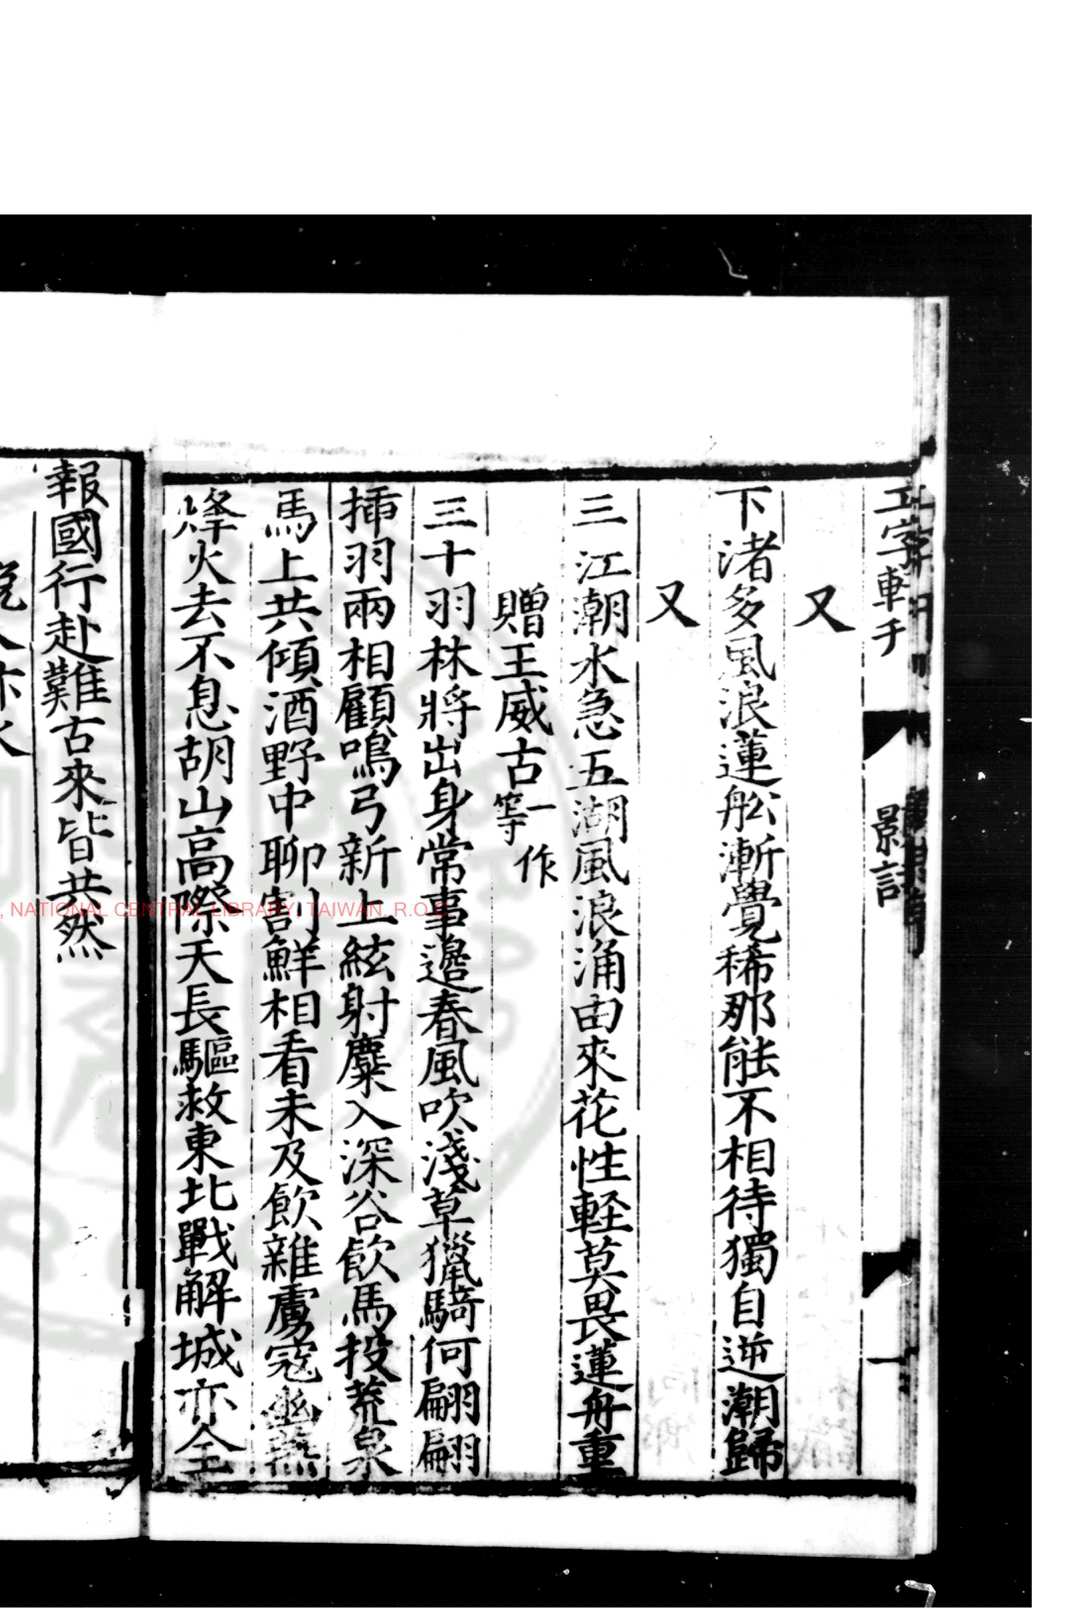 又
下渚多風浪蓮舩漸覺稀那能不相待獨自逆潮歸
又
三江潮水急五湖風浪涌由來花性軽莫畏蓮舟重
贈王威古一作等
三十羽林將出身常事邉春風吹淺草獵騎何翩翩
揷羽兩相顧鳴弓新上絃射麋入深谷飮馬投荒泉
馬上共傾酒野中聊割鮮相看未及飮雜虜寇幽燕
烽火去不息胡山高際天長驅救東北戰解城亦全
報國行赴難古來皆共然
, NATIONAL CENTRAL LIBRARY, TAIWAN, R.O.C